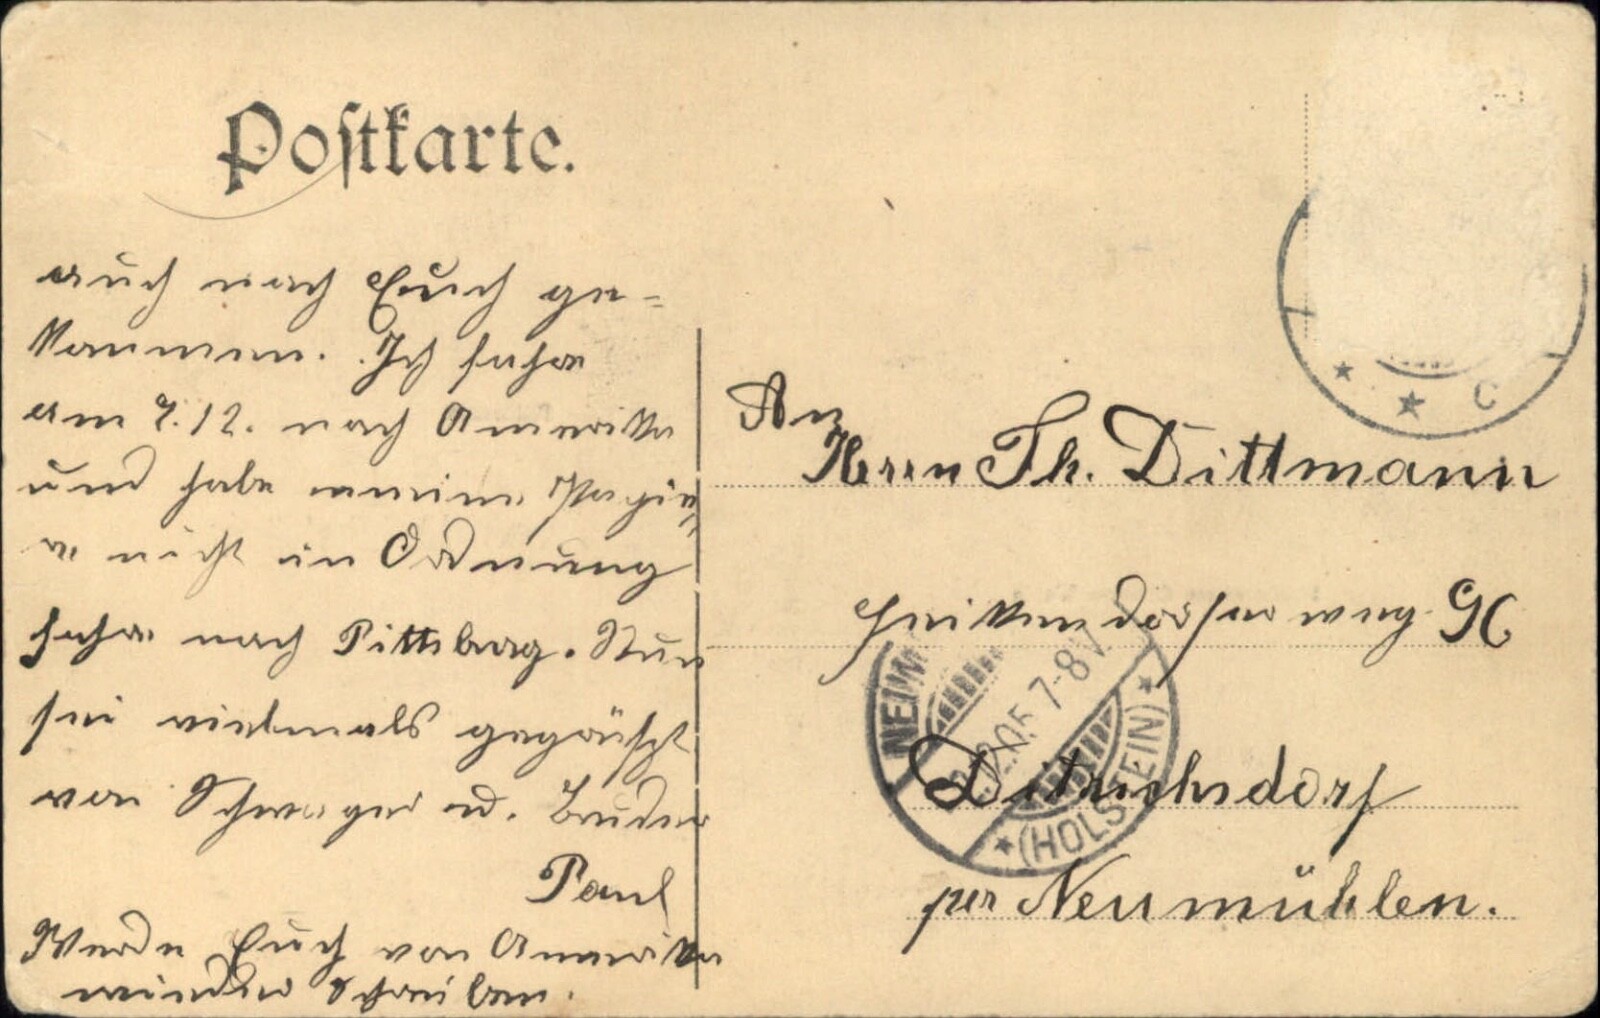 Postkarte.
auch nach Euch ge-
kommen. Ich fahre
am 7.12. nach Amerika
und habe meine Papie-
re nicht in Ordnung
fahre nach Pittsburg. Nun
sei vielmals gegrüßt
von Schwager u. Bruder
Paul
Werde Euch von Amerika
wieder schreiben.
An
Herrn Th. Dittmann
Heikendorfer weg
Ditrichsdorf
per Neumühlen.
NEUM
05 7-8V
(HOLSTEIN)
C